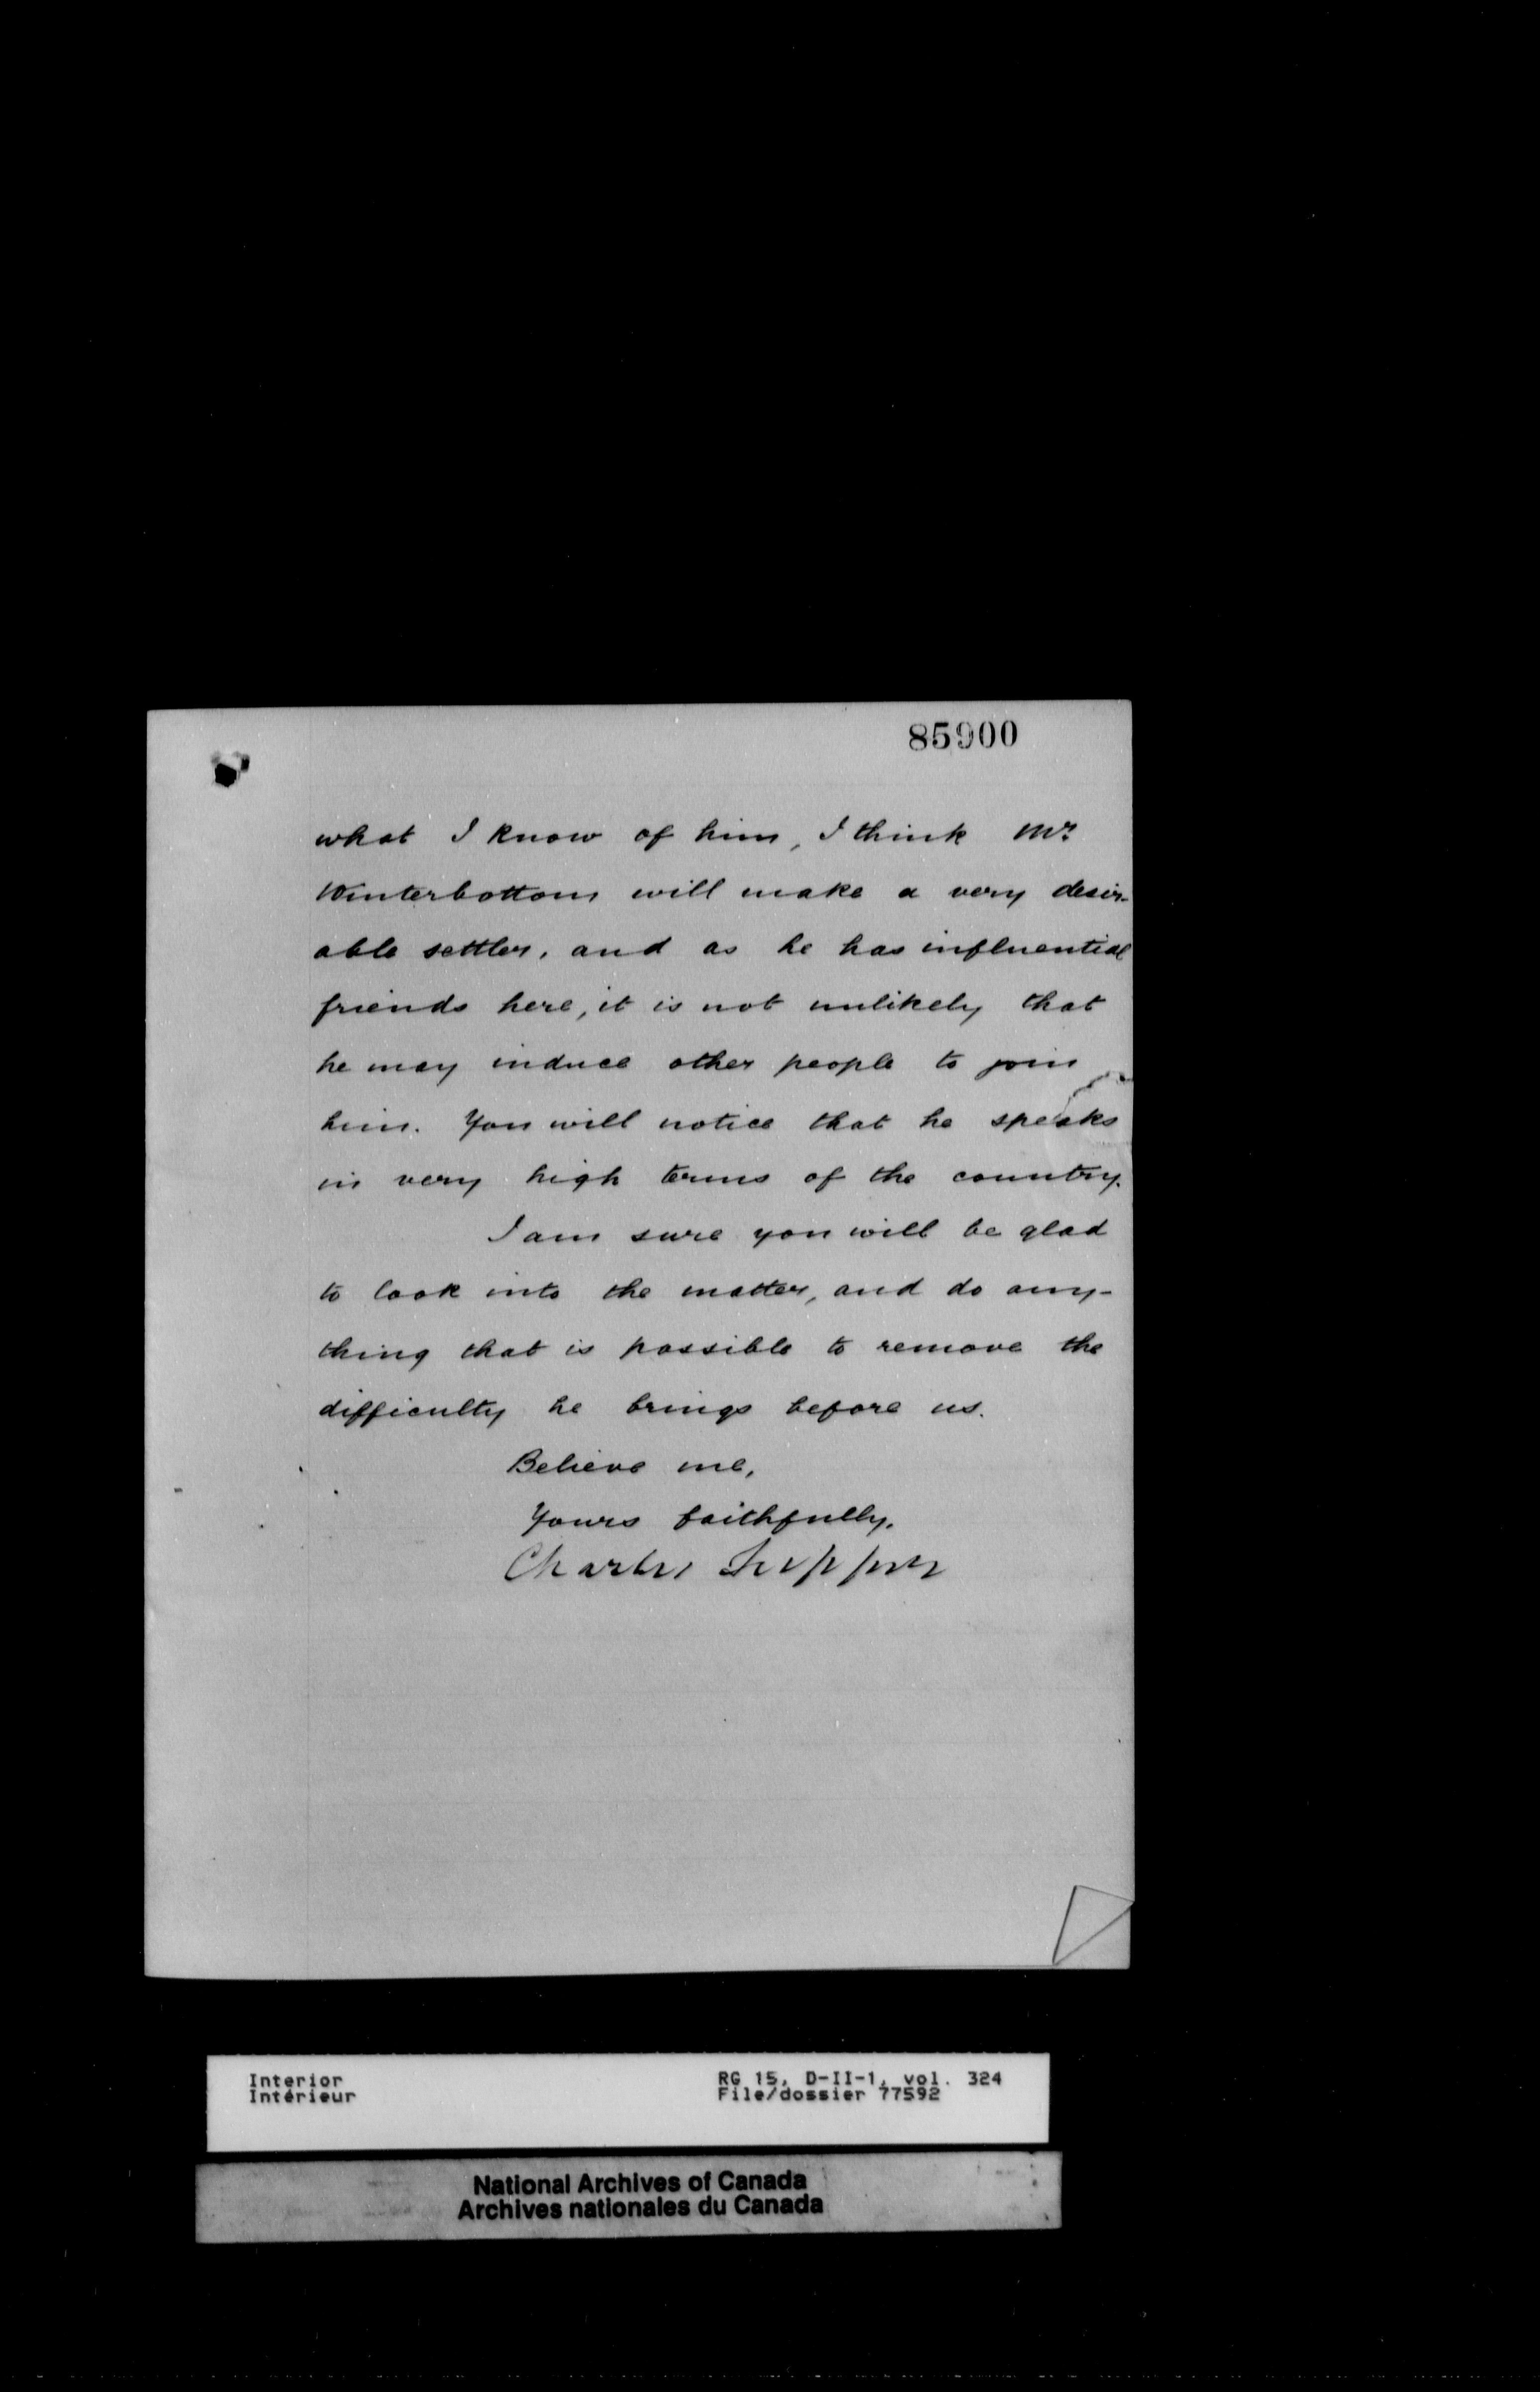 85900
what I know of him, I think Mr
Winterbottom will make a very desir-
able settler, and as he has influential
friends here, it is not unlikely that
he may induce other people to join
him. You will notice that he speaks
in very high terms of the country.
I am sure you will be glad
to look into the matter, and do any-
thing that is possible to remove the
difficulty he brings before us.
Believe me,
Yours faithfully,
Charles Tupper
Interior
Intérieur
RG 15, D-II-1, vol. 324
File/dossier 77592
National Archives of Canada
Archives nationales du Canada